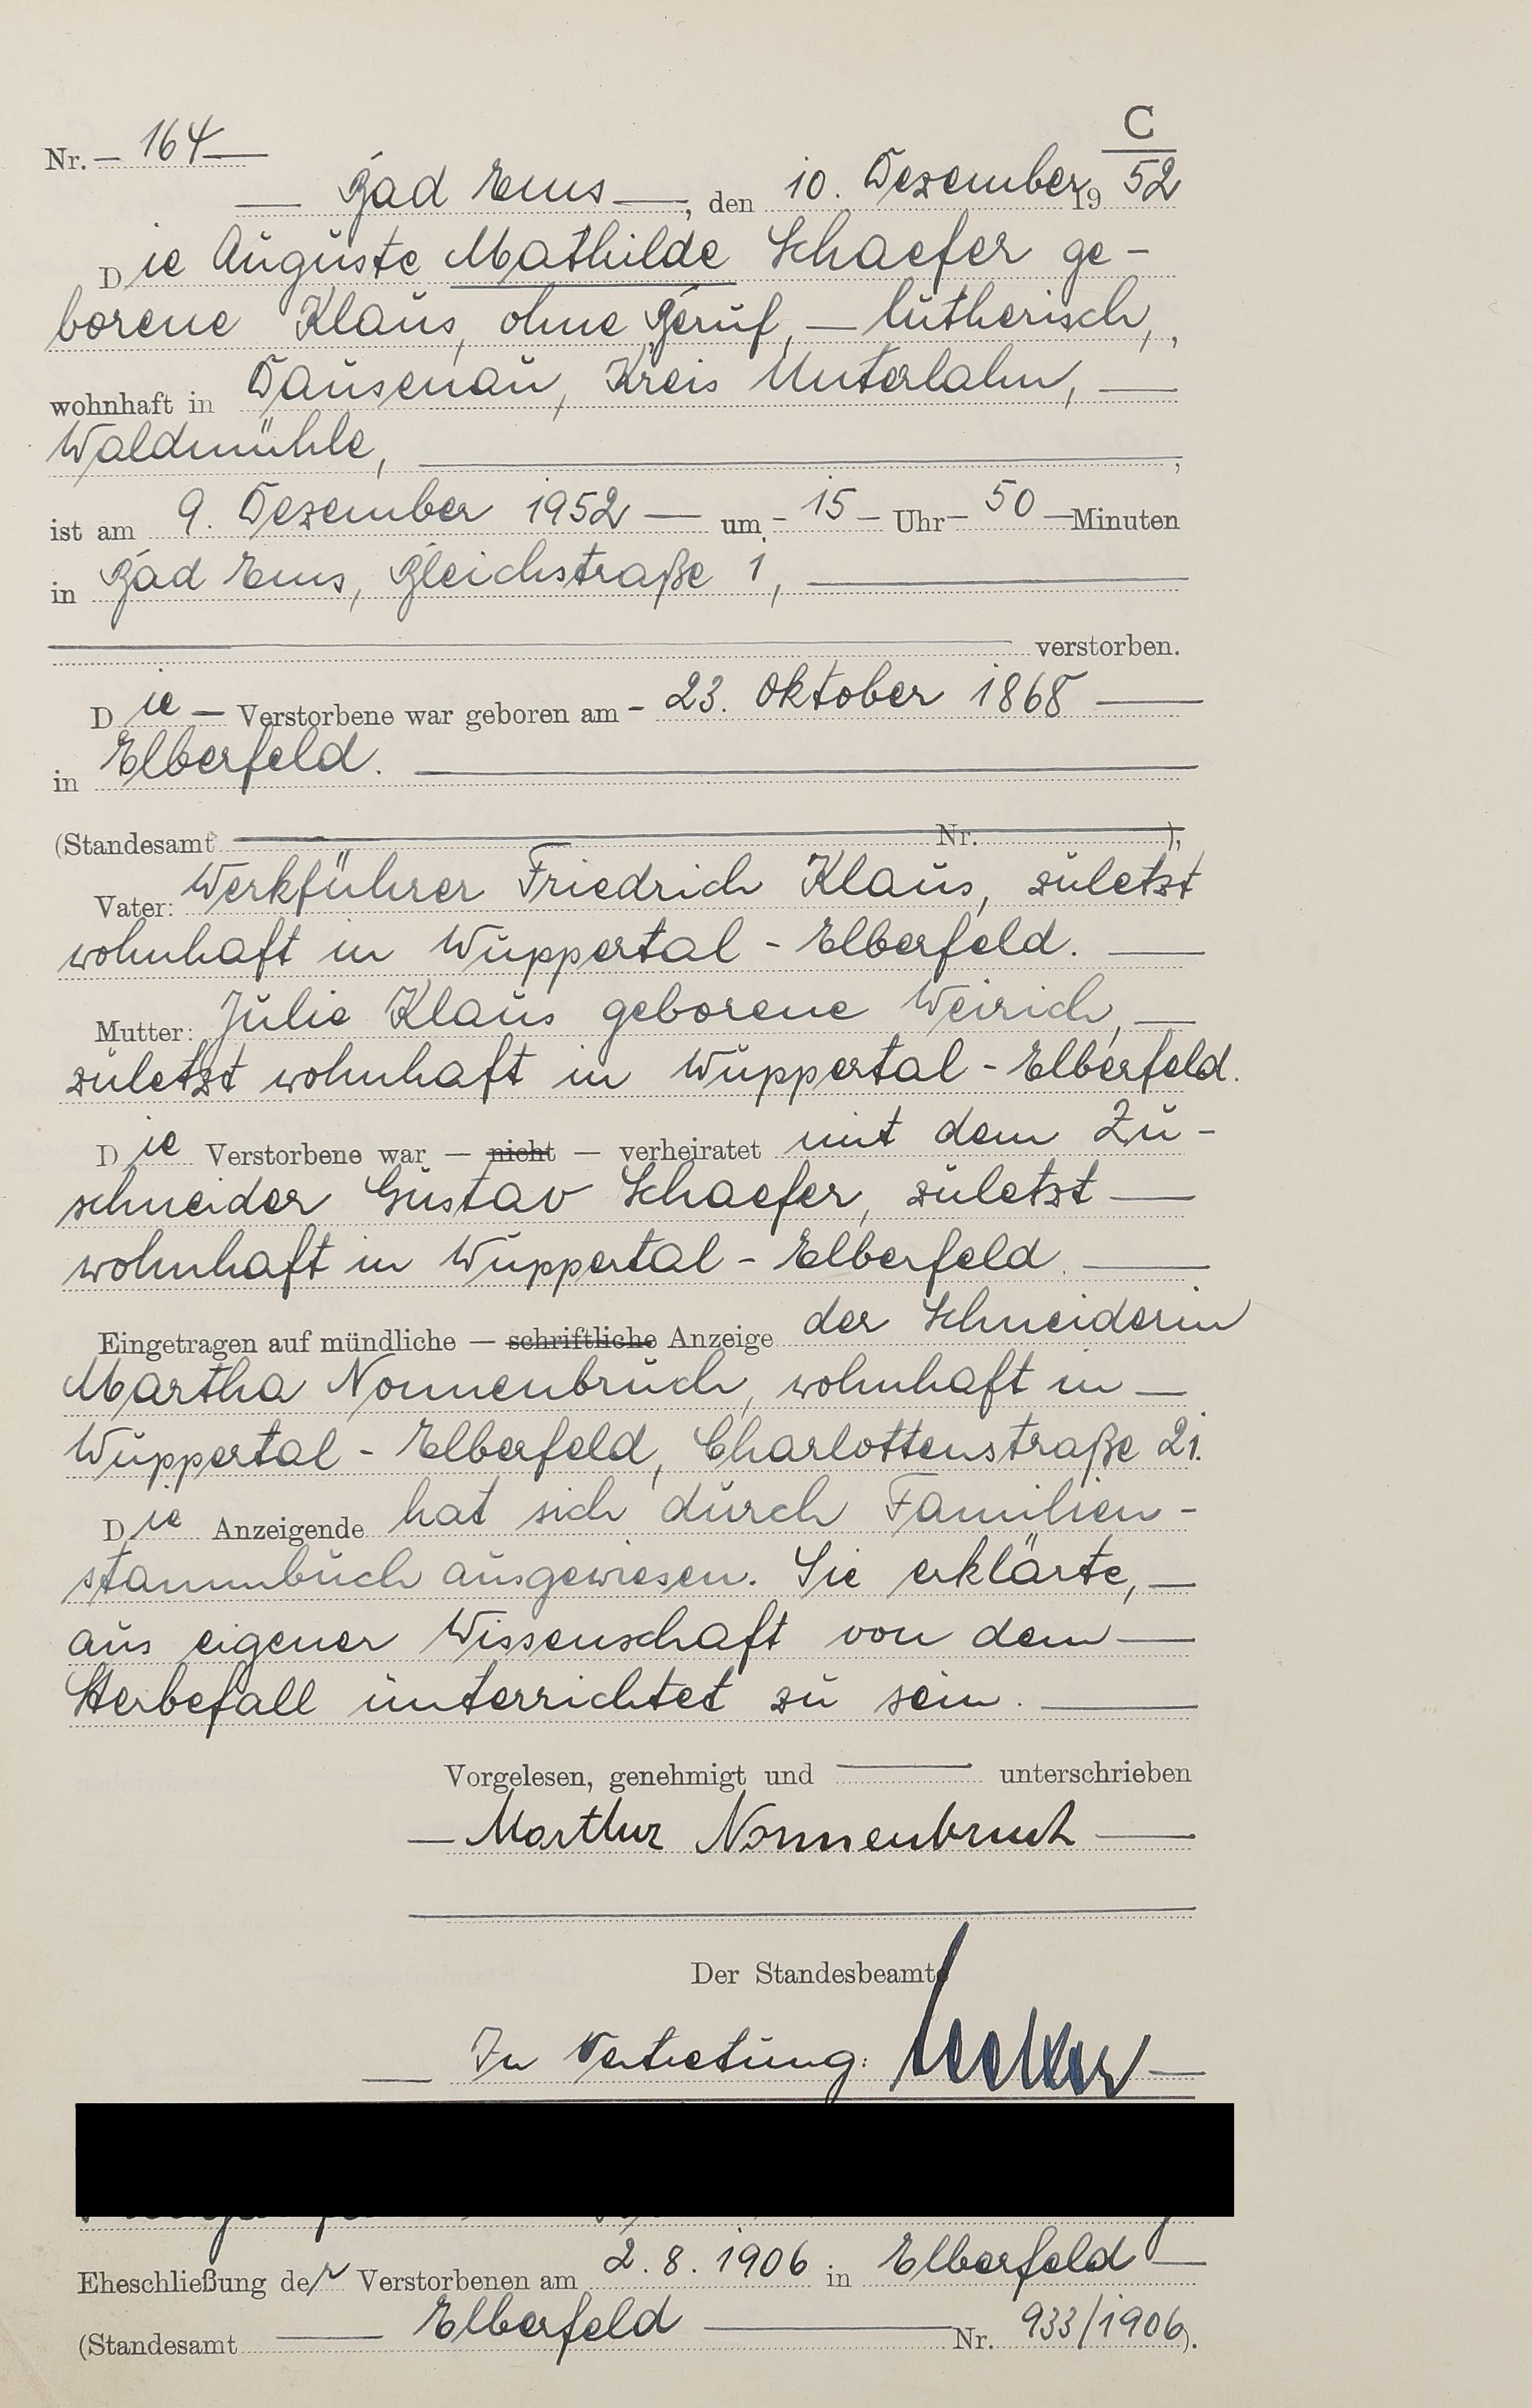 C
Nr. — 164 —
— Bad Ems —, den 10. Dezember 19 52
Die Auguste Mathilde Schaefer ge-
borene Klaus, ohne Beruf, — lutherisch, ,
wohnhaft in Dausenau, Kreis Unterlahn, —
Waldmühle, — ,
ist am 9. Dezember 1952 — um - 15 - Uhr - 50 — Minuten
in Bad Ems, Bleichstraße 1, —
— verstorben.
Die — Verstorbene war geboren am - 23. Oktober 1868 —
in Elberfeld. —
(Standesamt — Nr. — ),
Vater: Werkführer Friedrich Klaus, zuletzt
wohnhaft in Wuppertal - Elberfeld. —
Mutter: Julie Klaus geborene Weirich, —
zuletzt wohnhaft in Wuppertal - Elberfeld.
Die Verstorbene war — nicht — verheiratet mit dem Zu-
schneider Gustav Schaefer, zuletzt —
wohnhaft in Wuppertal - Elberfeld. —
Eingetragen auf mündliche — schriftliche Anzeige der Schneiderin
Martha Nonnenbruch, wohnhaft in —
Wuppertal - Elberfeld, Charlottenstraße 21.
Die Anzeigende hat sich durch Familien-
stammbuch ausgewiesen. Sie erklärte, —
aus eigener Wissenschaft von dem —
Sterbefall unterrichtet zu sein. —
Vorgelesen, genehmigt und — unterschrieben
— Martha Nonnenbruch —
Der Standesbeamte
— In Vertretung: —
Eheschließung der Verstorbenen am 2. 8. 1906 in Elberfeld —
(Standesamt — Elberfeld — Nr. 933/1906).